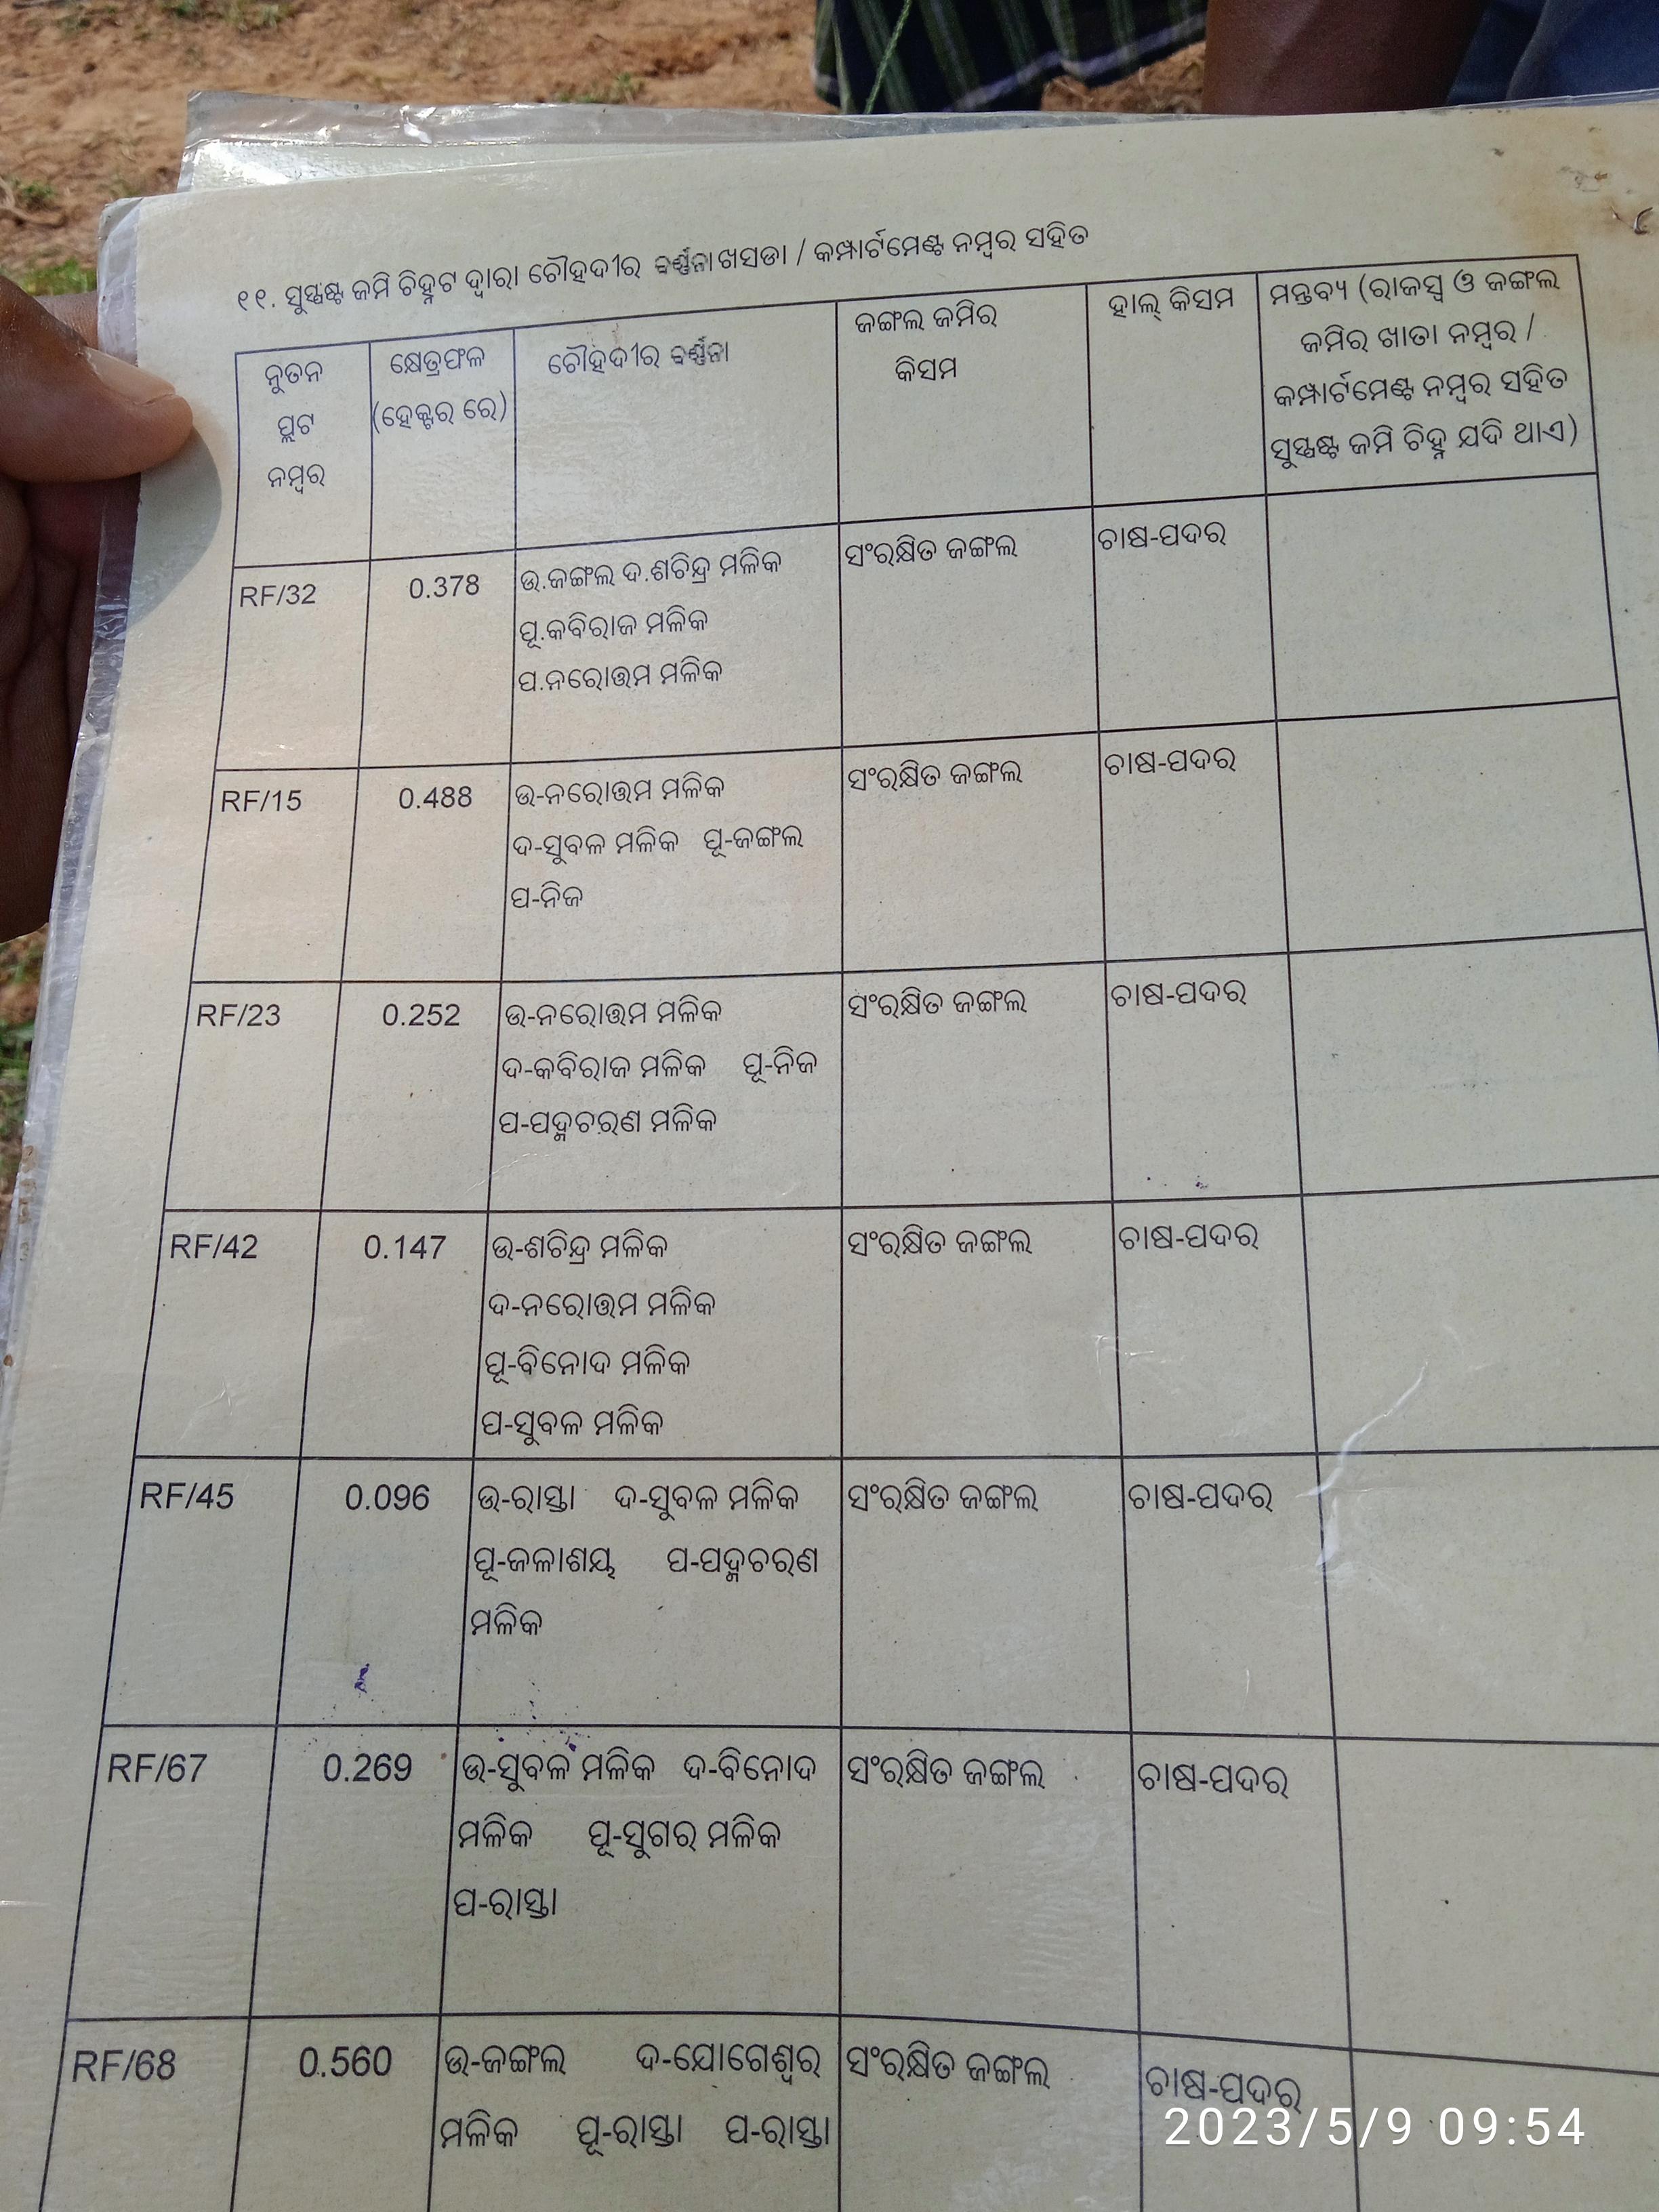 ୧୧. ସୁସ୍ପଷ୍ଟ ଜମି ଚିହ୍ନଟ ଦ୍ଵାରା ଚୌହଦୀର ବର୍ଣ୍ଣନା ଖସଡା / କମ୍ପାର୍ଟମେଣ୍ଟ ନମ୍ବର ସହିତ
ନୁତନ
ପ୍ଲଟ
ନମ୍ବର
କ୍ଷେତ୍ରଫଳ
(ହେକ୍ଟର ରେ)
ଚୌହଦୀର ବର୍ଣ୍ଣନା
ଜଙ୍ଗଲ ଜମିର
କିସମ
ହାଲ୍ କିସମ
ମନ୍ତବ୍ୟ (ରାଜସ୍ଵ ଓ ଜଙ୍ଗଲ
ଜମିର ଖାତା ନମ୍ବର /
କମ୍ପାର୍ଟମେଣ୍ଟ ନମ୍ବର ସହିତ
ସୁସ୍ପଷ୍ଟ ଜମି ଚିହ୍ନ ଯଦି ଥାଏ)
RF/32
0.378
ଉ.ଜଙ୍ଗଲ ଦ.ଶଚିନ୍ଦ୍ର ମଳିକ
ପୂ.କବିରାଜ ମଳିକ
ପ.ନରୋତ୍ତମ ମଳିକ
ସଂରକ୍ଷିତ ଜଙ୍ଗଲ
ଚାଷ-ପଦର
RF/15
0.488
ଉ-ନରୋତ୍ତମ ମଳିକ
ଦ-ସୁବଳ ମଳିକ ପୂ-ଜଙ୍ଗଲ
ପ-ନିଜ
ସଂରକ୍ଷିତ ଜଙ୍ଗଲ
ଚାଷ-ପଦର
RF/23
0.252
ଉ-ନରୋତ୍ତମ ମଳିକ
ଦ-କବିରାଜ ମଳିକ ପୂ-ନିଜ
ପ-ପଦ୍ମଚରଣ ମଳିକ
ସଂରକ୍ଷିତ ଜଙ୍ଗଲ
ଚାଷ-ପଦର
RF/42
0.147
ଉ-ଶଚିନ୍ଦ୍ର ମଳିକ
ଦ-ନରୋତ୍ତମ ମଳିକ
ପୂ-ବିନୋଦ ମଳିକ
ପ-ସୁବଳ ମଳିକ
ସଂରକ୍ଷିତ ଜଙ୍ଗଲ
ଚାଷ-ପଦର
RF/45
0.096
ଉ-ରାସ୍ତା ଦ-ସୁବଳ ମଳିକ
ପୂ-ଜଳାଶୟ ପ-ପଦ୍ମଚରଣ
ମଳିକ
ସଂରକ୍ଷିତ ଜଙ୍ଗଲ
ଚାଷ-ପଦର
RF/67
0.269
ଉ-ସୁବଳ ମଳିକ ଦ-ବିନୋଦ
ମଳିକ ପୂ-ସୁଗର ମଳିକ
ପ-ରାସ୍ତା
ସଂରକ୍ଷିତ ଜଙ୍ଗଲ
ଚାଷ-ପଦର
RF/68
0.560
ଉ-ଜଙ୍ଗଲ ଦ-ଯୋଗେଶ୍ଵର
ମଳିକ ପୂ-ରାସ୍ତା ପ-ରାସ୍ତା
ସଂରକ୍ଷିତ ଜଙ୍ଗଲ
ଚାଷ-ପଦର
2023/5/9 09:54